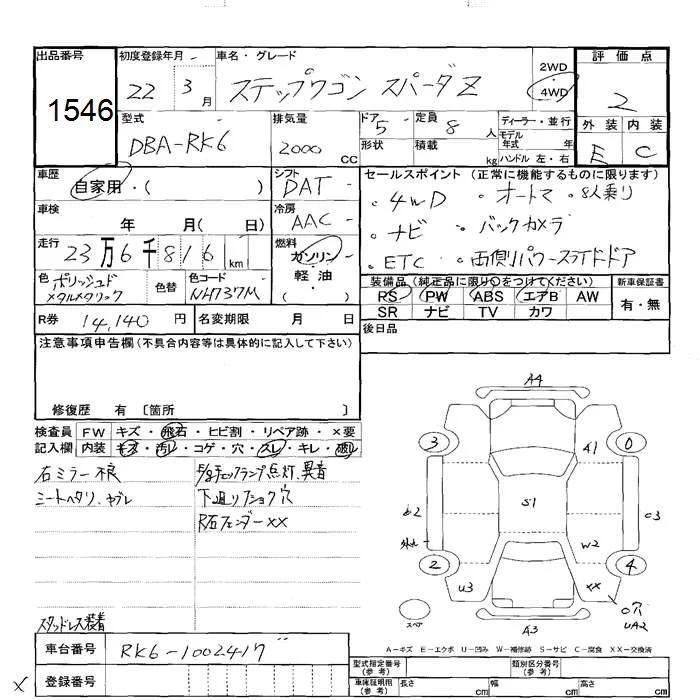 出品番号 初度登録年月 車名・グレード 評価点
1546 22 3月 ステップワゴン スパーダZ 2WD 4WD 2
型式 排気量 ドア 定員 ディーラー・並行 外装 内装
DBA-RK6 2000 CC 5 8人 モデル年式 年 E C
形状 積載 kg ハンドル 左・右
車歴 シフト セールスポイント (正常に機能するものに限ります)
自家用・( ) DAT
・4WD ・オートマ ・8人乗り
車検 年 月( 日) 冷房 AAC
・ナビ ・バックカメラ
走行 23万6千816km 燃料 ガソリン・軽油・( )
・ETC ・両側パワースライドドア
色 ポリッシュドメタルメタリック 色替 色コード NH737M
装備品 (純正品に限り○をつけてください) 新車保証書
RS PW ABS エアB AW 有・無
SR ナビ TV カワ
R券 14,140円 名変期限 月 日
後日品
注意事項申告欄 (不具合内容等は具体的に記入して下さい)
修復歴 有 [箇所 ]
検査員 FW キズ・飛石・ヒビ割・リペア跡・×要
記入欄 内装 キズ・汚レ・コゲ・穴・スレ・キレ・破レ
右ミラー不良
シートヘタリ、ヤブレ
チェックランプ点灯、異音
下廻り 穴
R右フェンダーXX
スタッドレス装着
A4
3 A1 0
B2 S1 C3
W2
2 4
U3 XX
○穴
UA2
スペア A3
A-キズ E-エクボ U-凹み W-補修跡 S-サビ C-腐食 XX-交換済
車台番号 RK6-1002417
登録番号
型式指定番号(参考) 類別区分番号(参考)
車検証明用(参考) 長さ cm 幅 cm 高さ cm
X